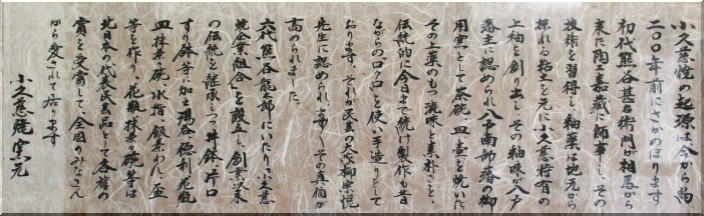 小久慈焼の起源は今から約
二〇〇年前にさかのぼります
初代熊谷甚右衛門が相馬から
来た陶工嘉蔵に師事し、その
技術を習得し、釉薬は地元から
採れる粘土を元に小久慈特有の
上釉を創り出し、その釉味が八戸
藩主に認められ八戸南部藩の御
用窯として茶碗、皿、壷と焼いた
その上薬のもつ渋味と素朴ごと、
伝統的に今日まで続け製作も昔
ながらのロクロを使い手造りとして
おります。それが民芸の大家柳宗悦
先生に認められますその真価が
高められました。
六代熊谷龍太郎にいたり「小久慈
焼企業組合」を設立し、創業以来
の伝統を継承しつつ丼、鉢、片口
すり鉢等に加え湯呑、徳利、花瓶
皿、抹茶碗、水指、飯茶わん、盃
等を作り、花瓶、抹茶々碗等は
北日本の代表民芸品として各種の
賞を受賞して、全国のみなさん
から愛されて居ります
小久慈焼窯元